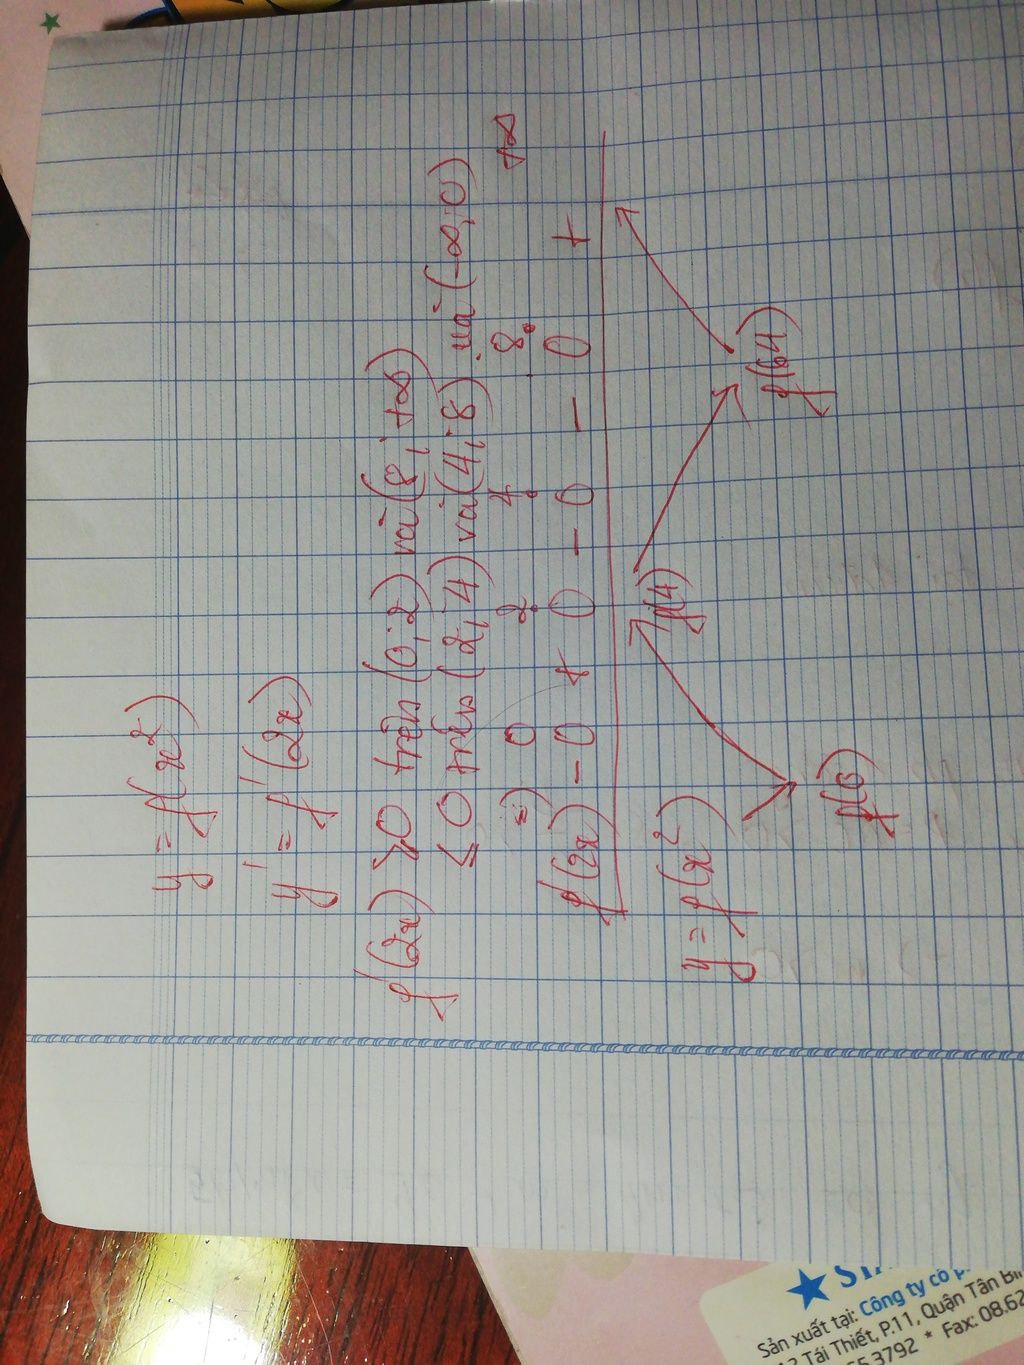 y = f(x²)
y' = f'(2x)
f'(2x) ≥ 0 trên (0; 2) và (8; +∞)
≤ 0 trên (2; 4) và (4; 8) và (-∞; 0)
=) 0 2 4 8 +∞
f'(2x) - 0 + 0 - 0 - 0 +
y = f(x²)
f(4)
f(64)
f(0)
Công ty cổ
Sản xuất tại:
Tái Thiết, P.11, Quận Tân Bìn
3792 * Fax: 08.62